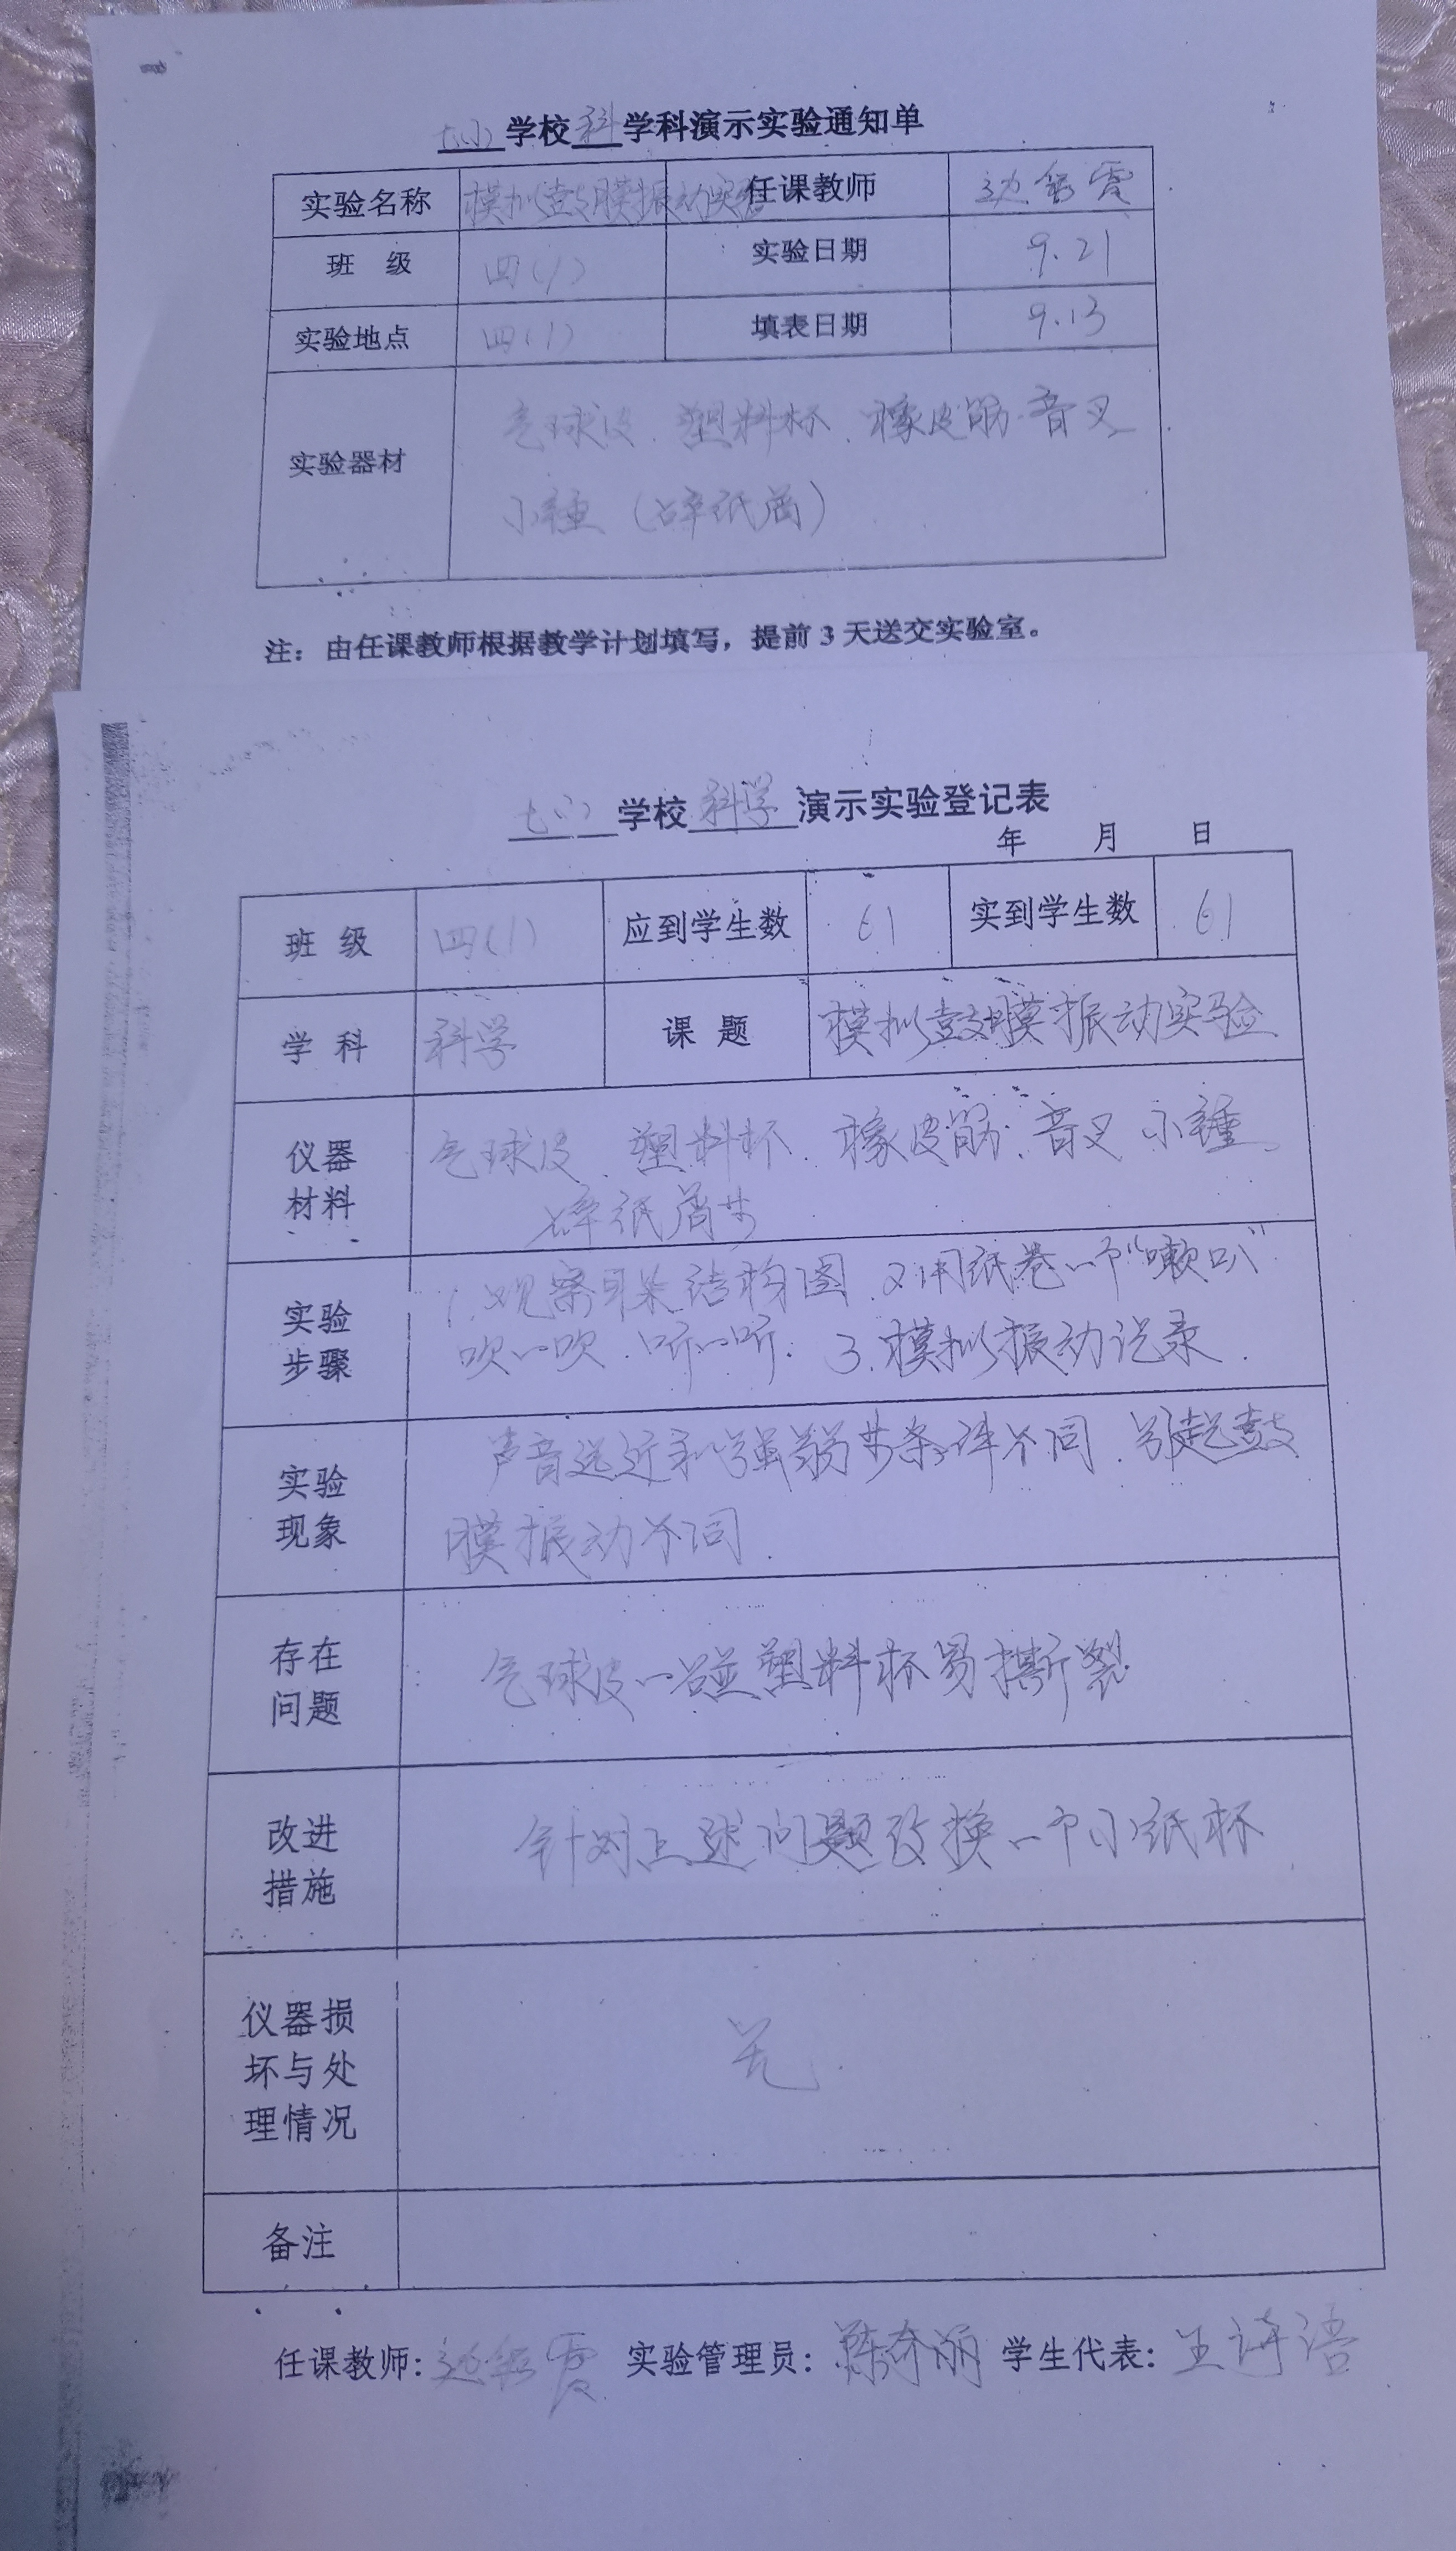 七小学校科学科演示实验通知单
实验名称 模拟鼓膜振动实验 任课教师 边
班 级 四(1) 实验日期 9.21
实验地点 四(1) 填表日期 9.13
实验器材 气球皮、塑料杯、橡皮筋、音叉
小锤(碎纸屑)
注：由任课教师根据教学计划填写，提前3天送交实验室。
七小学校科学演示实验登记表
年 月 日
班 级 四(1) 应到学生数 61 实到学生数 61
学 科 科学 课 题 模拟鼓膜振动实验
仪器材料 气球皮、塑料杯、橡皮筋、音叉 小锤、
碎纸屑步
实验步骤 1.观察耳朵结构图.2.用纸卷一个“喇叭”
吹一吹.听一听.3.模拟振动记录.
实验现象 声音远近和强弱步条件不同.引起鼓
膜振动不同.
存在问题 气球皮一碰塑料杯易撕裂
改进措施 针对上述问题改换一个小纸杯
仪器损坏与处理情况 无.
备注
任课教师：边 实验管理员： 学生代表：王诗语